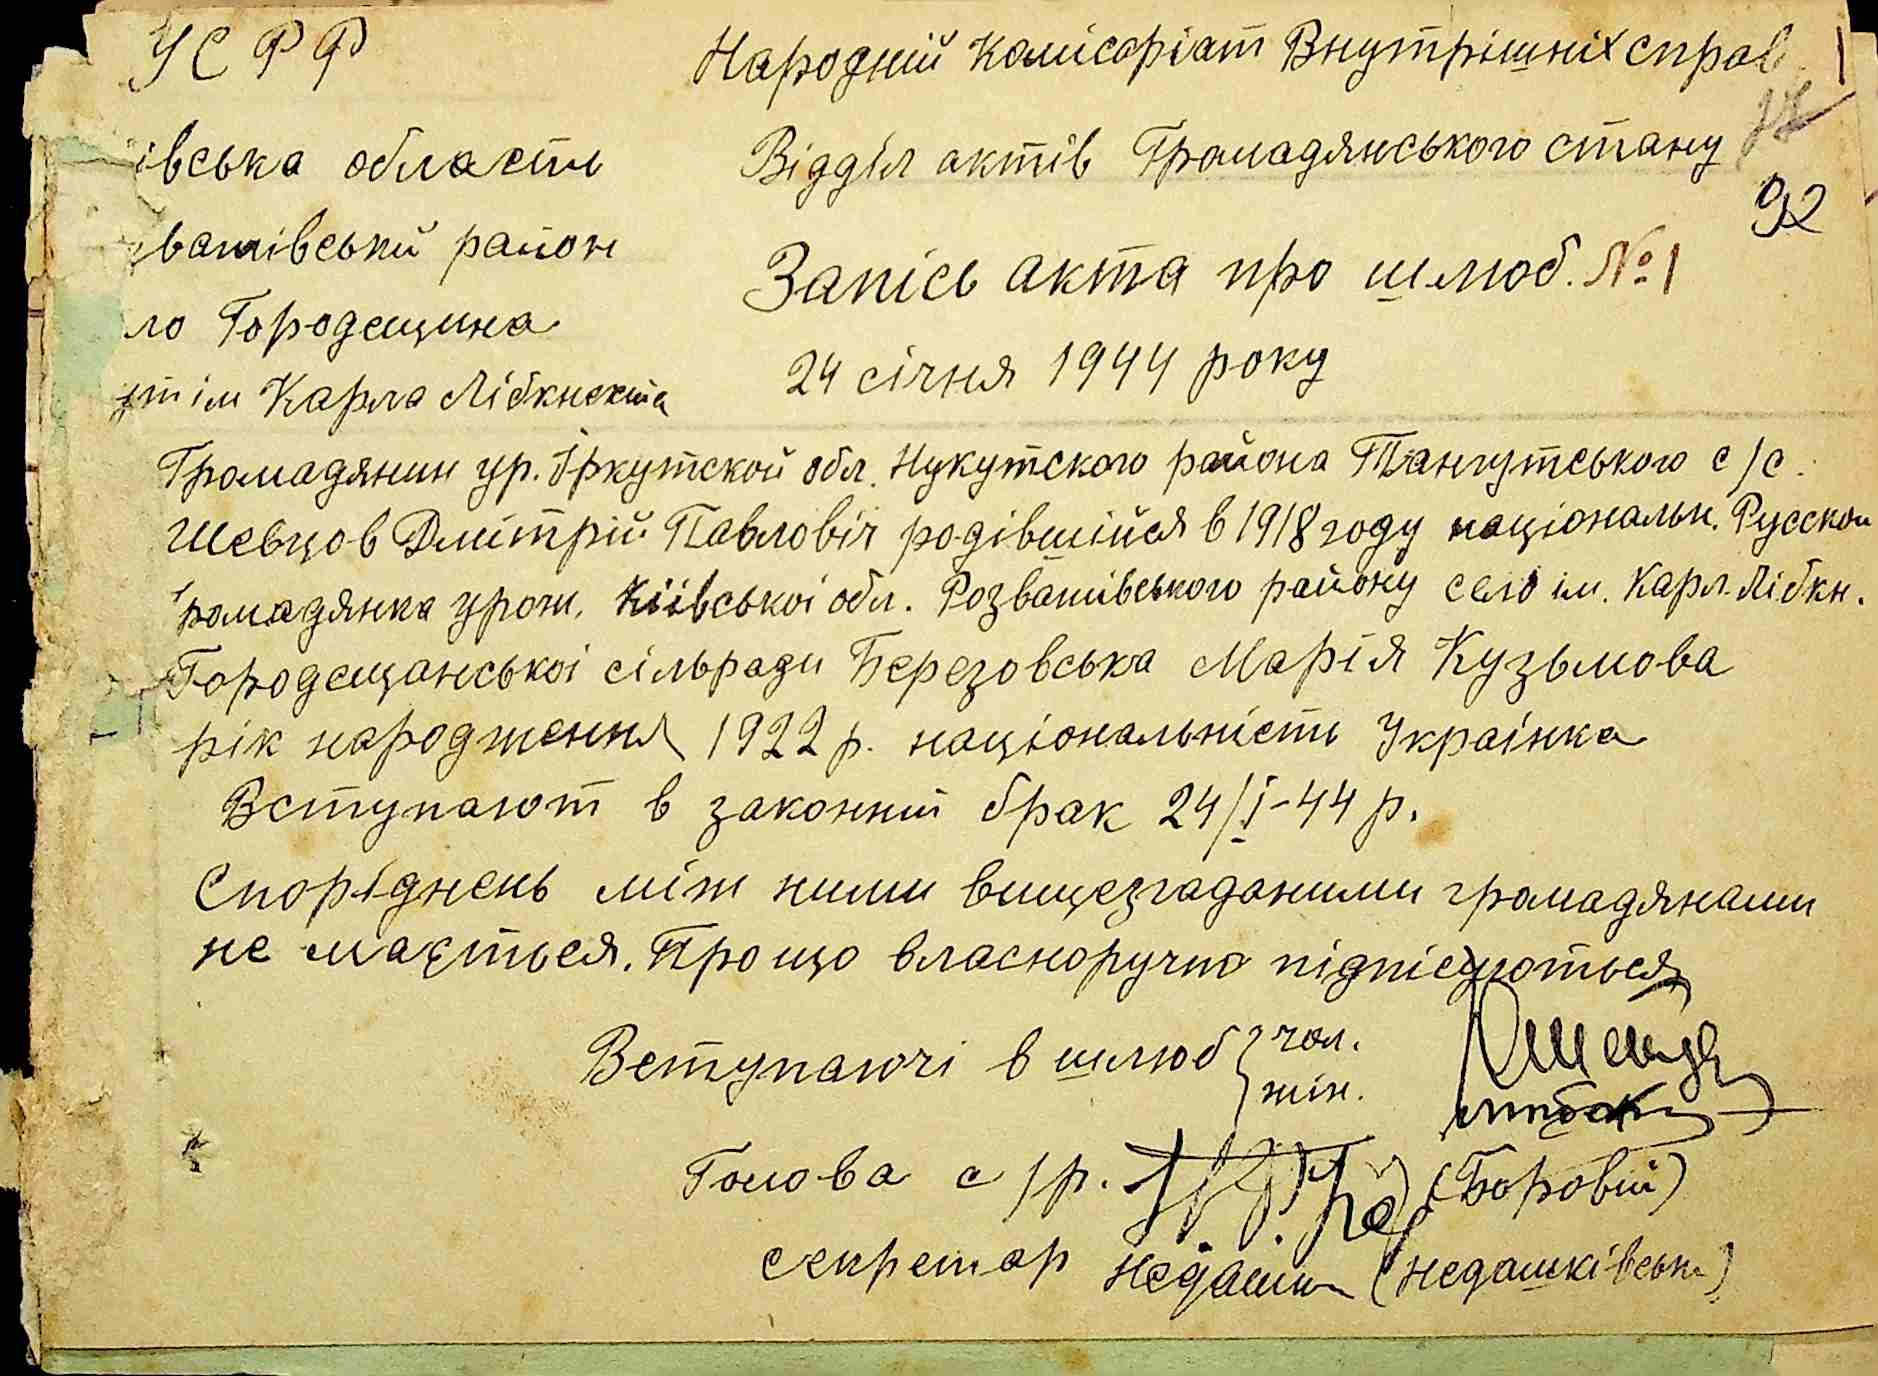 УСРР
Народній Комісаріат Внутрішніх справ 1
івська область
Відділ актів Громадянського стану
92
важівський район
Запісь акта про шлюб. № 1
ло Городещина
24 січня 1944 року
ім Карла Лібкнехта
Громадянин ур. Іркутской обл. Нукутского района Тангутського с/с.
Шевцов Дмітрій Павловіч родівшійся в 1918 году національн. Русской
Громадянка урож. Київської обл. Розважівського району село ім. Карл. Лібкн.
Городещанської сільради Березовська Марія Кузьмова
рік народження 1922 р. національність Українка
Вступают в законний брак 24/I-44 р.
Споріднень між ними вищезгаданими громадянами
не мається. Про що власноручно підпісуються
Вступаючі в шлюб { чол.
жін.
Голова с/р. (Боровий)
секретар Недашк (Недашківськ)